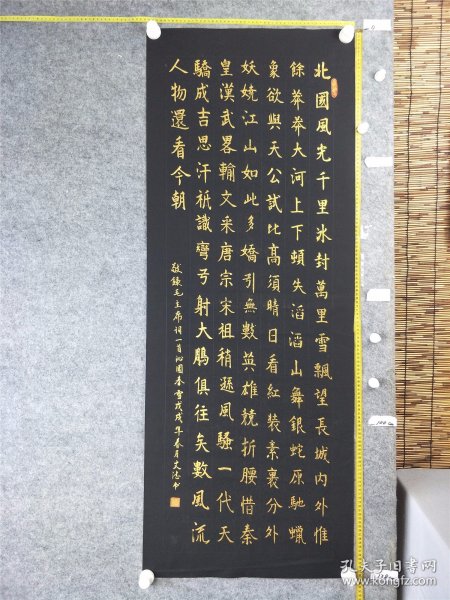 北國風光千里冰封萬里雪飄望長城內外惟
餘莽莽大河上下頓失滔滔山舞銀蛇原馳蠟
象欲與天公試比高須晴日看紅裝素裹分外
妖嬈江山如此多嬌引無數英雄競折腰惜秦
皇漢武畧輸文采唐宗宋祖稍遜風騷一代天
驕成吉思汗祇識彎弓射大鵰俱往矣數風流
人物還看今朝
敬錄毛主席詞一首沁園春雪戊戌年春月文志书
孔夫子旧书网
www.kongfz.com